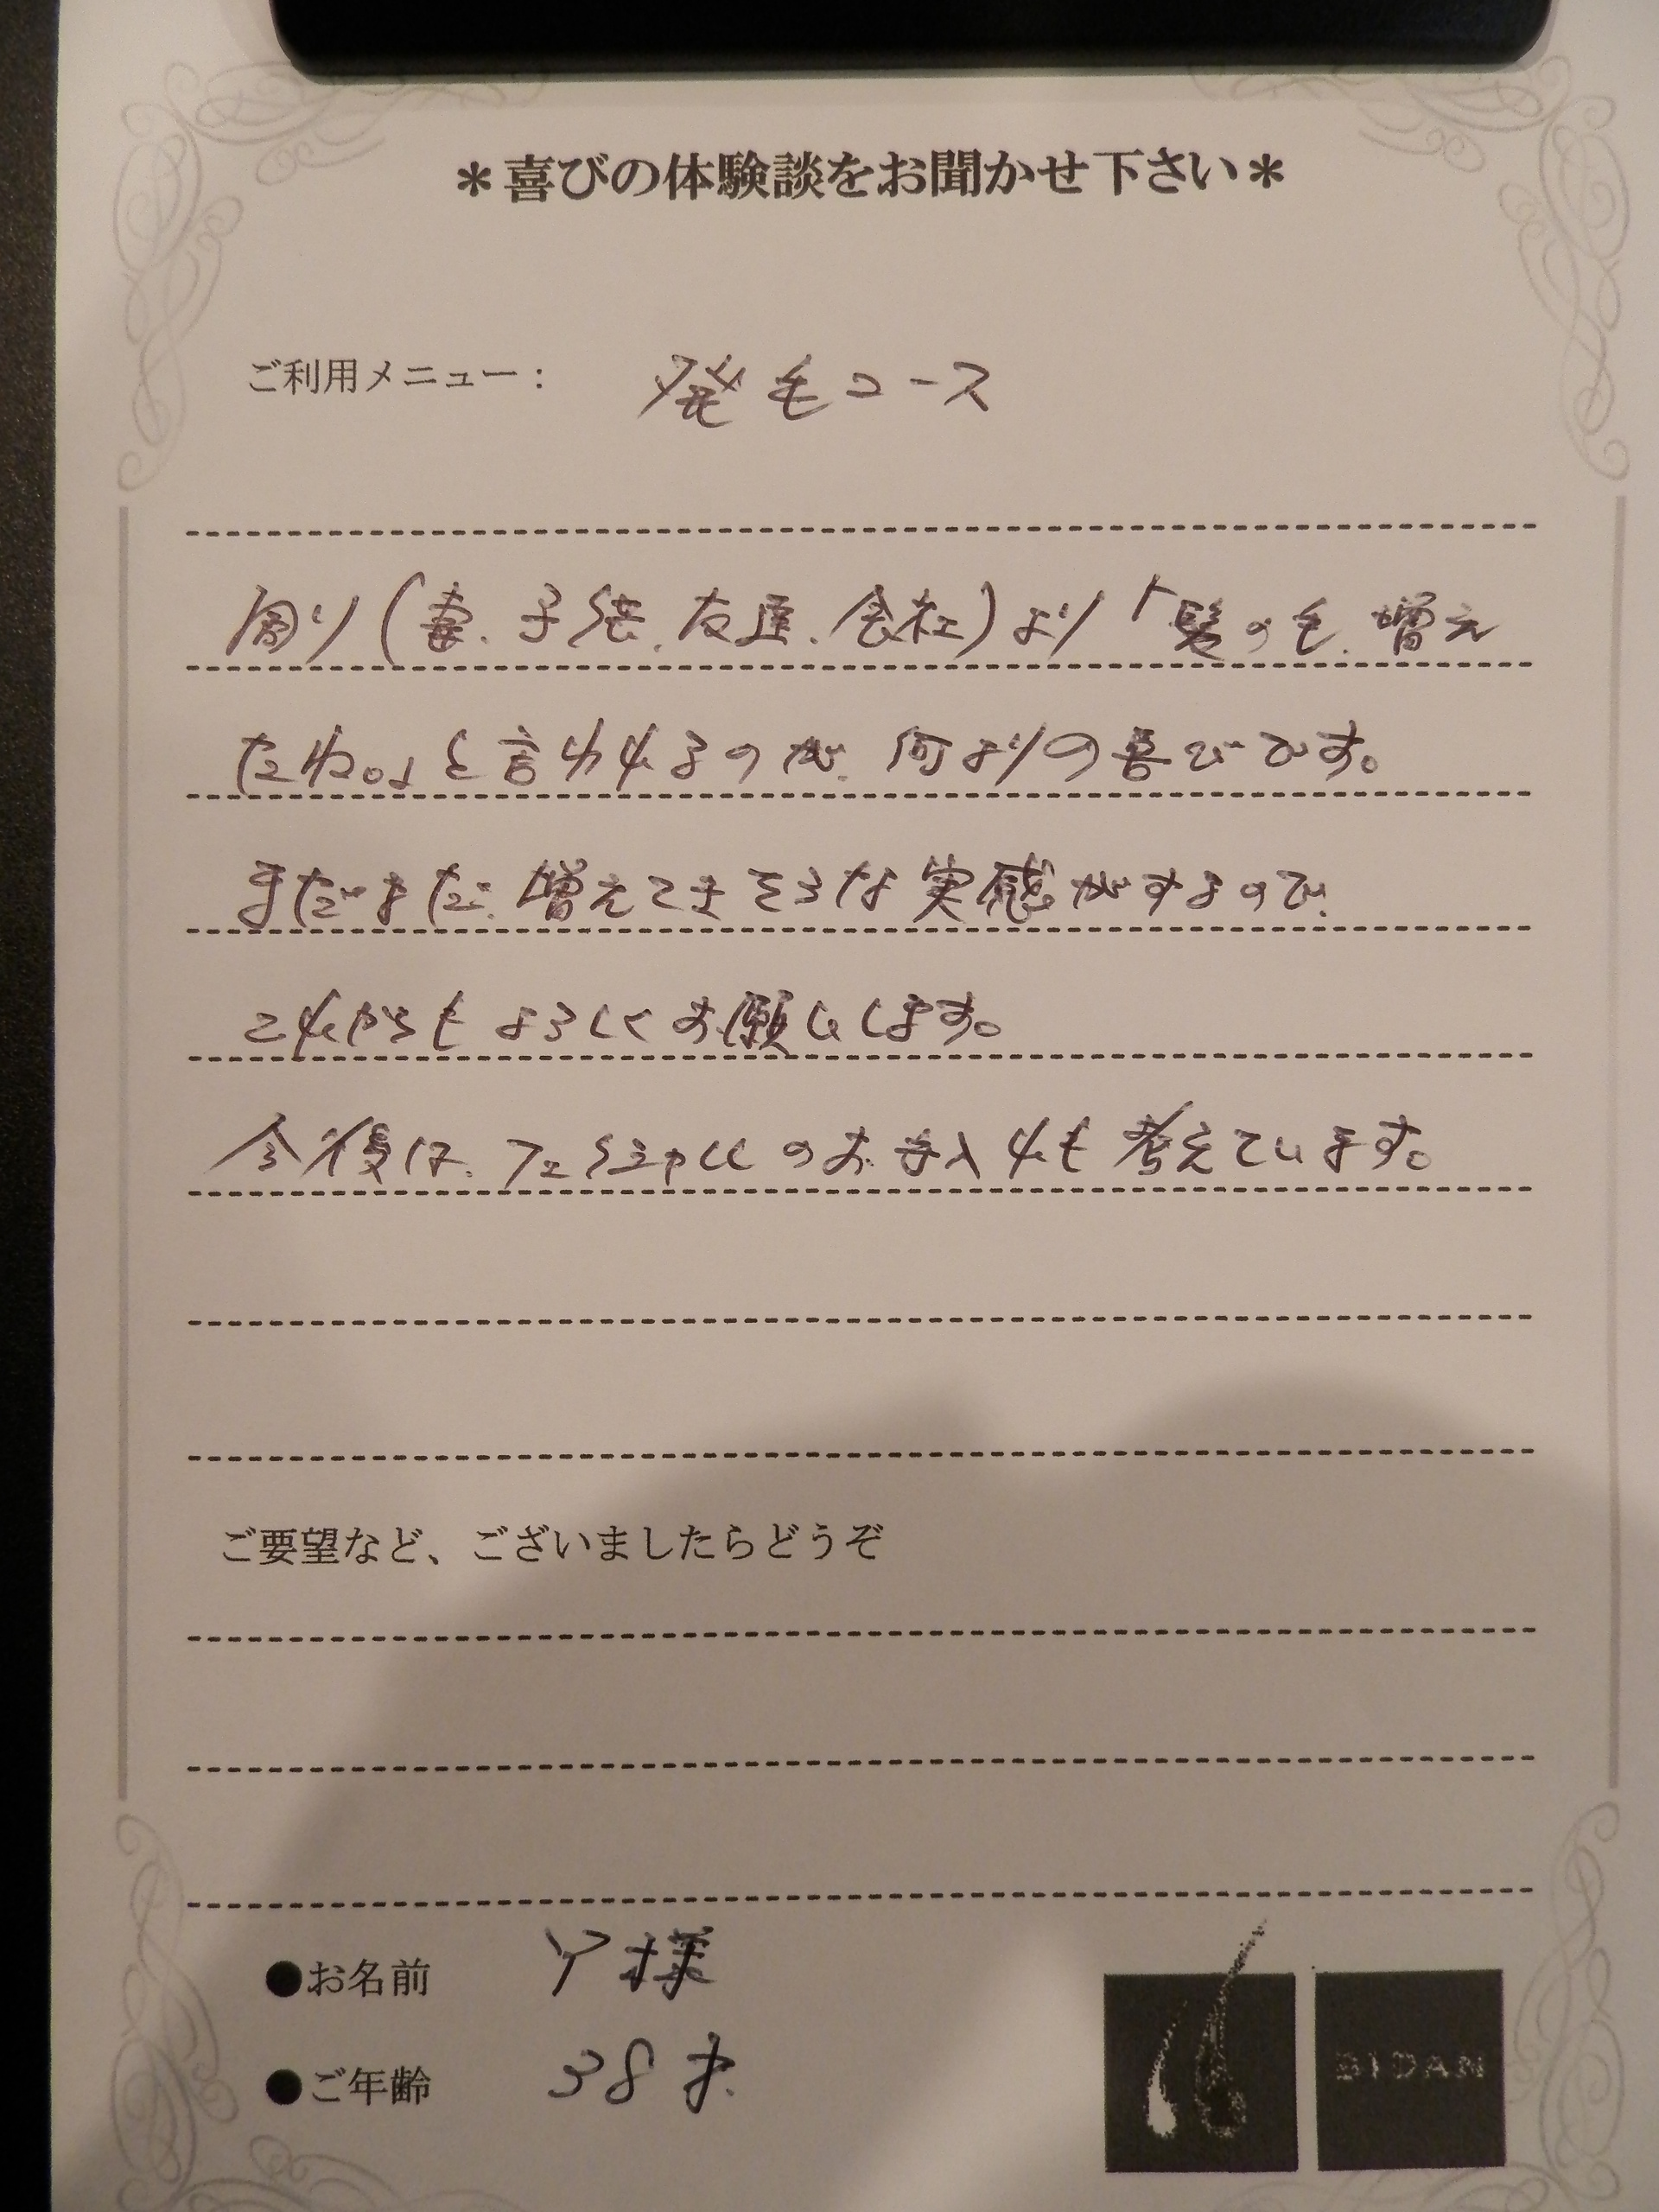 ＊喜びの体験談をお聞かせ下さい＊
ご利用メニュー： 発毛コース
周り(妻、子供、友達、会社)より「髪の毛、増え
たね。」と言われるのが、何よりの喜びです。
まだまだ、増えてきそうな実感がするので、
これからもよろしくお願いします。
今後は、フェイシャルのお手入れも考えています。
ご要望など、ございましたらどうぞ
●お名前 Y様
●ご年齢 38才
BIDAN